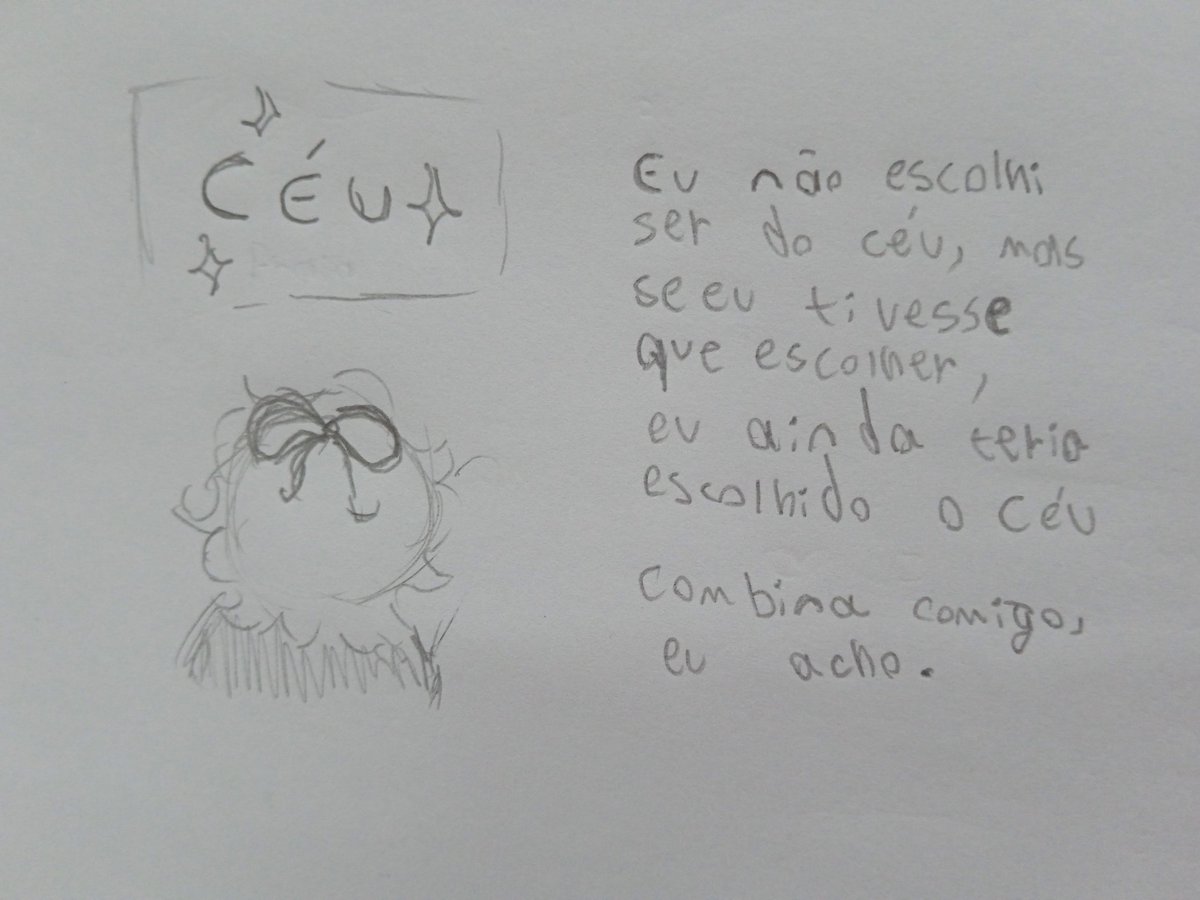 CÉU
Eu não escolhi
ser do céu, mas
se eu tivesse
que escolher,
eu ainda teria
escolhido o céu
Combina comigo,
eu acho.